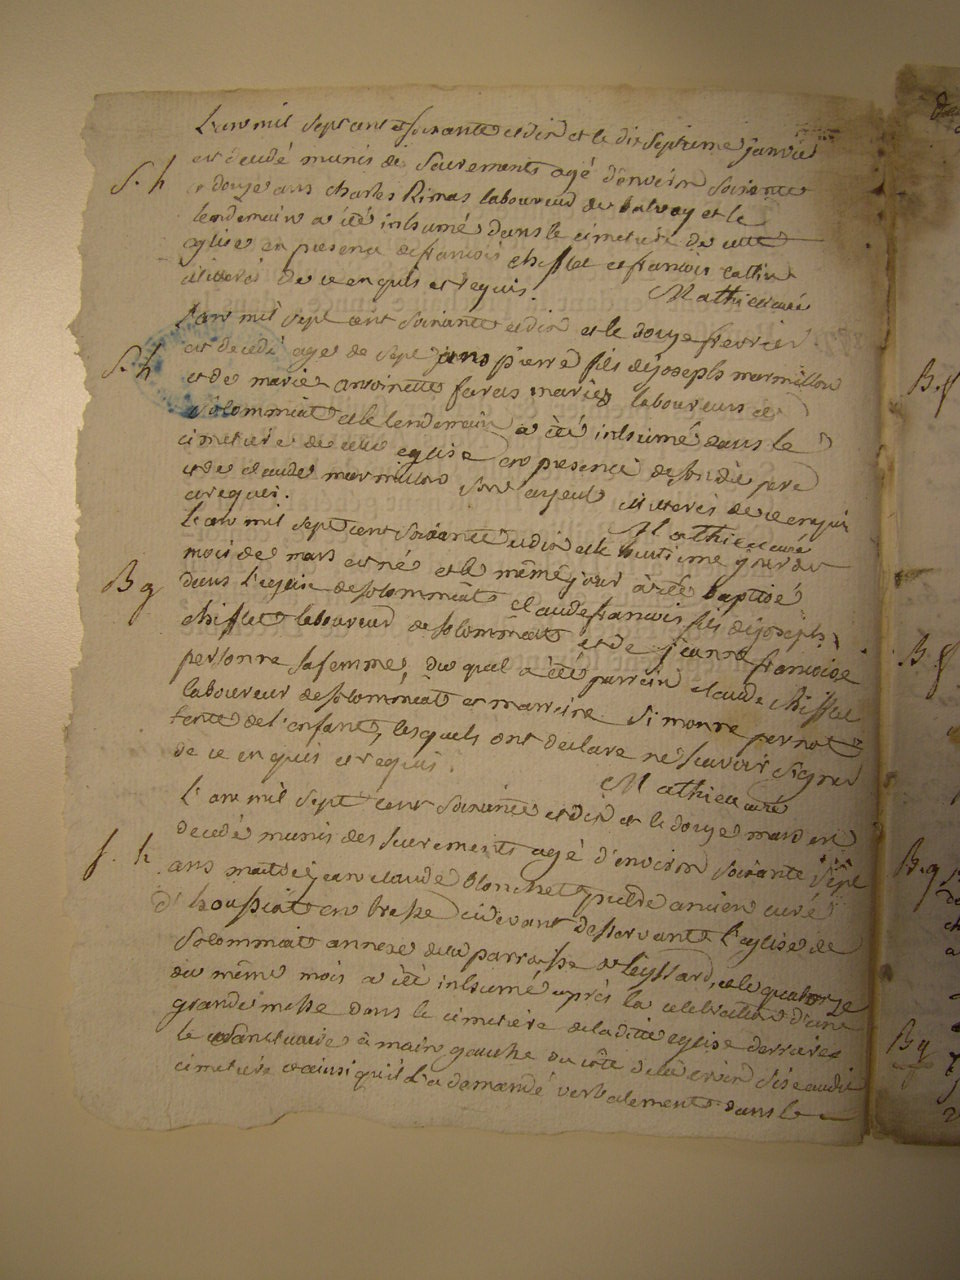 L'an mil sept cent et soixante et dix et le dix septieme janvier
S. h est decedé munis des Sacrements agé d'environ soixante
et douze ans charles Rimas laboureur de balvay et le
lendemain a été inhumé dans le cimetiere de cette
eglise en presence de francois chifflet et francois
illiterés de ce enquis et requis. Mathieu curé
L'an mil sept cent soixante et dix et le douze fevrier
S. h est decedé agé de sept ans pierre fils de joseph marmillon
et de marie antoinette mariés laboureurs de
Solommiat et le lendemain a été inhumé dans le
cimetiere de cette eglise en presence de son dit pere
et de claude marmillon son ayeul illiterés de ce enquis
et requis. Mathieu curé
L'an mil sept cent soixante et dix et le huitieme jour du
mois de mars est né et le même jour a été baptisé
B g dans l'eglise de solommiat claude francois fils de joseph
chifflet laboureur de solommiat et de jeanne francoise
personne sa femme, du quel a été parrein claude chifflet
laboureur de solommiat et marreine Simonne pernot
tante de l'enfant, lesquels ont declare ne scavoir signer
de ce enquis et requis. Mathieu curé
L'an mil sept cent soixante et dix et le douze mars est
decedé munis des sacrements agé d'environ soixante sept
S. h ans maitre jean claude blonchet ancien curé
d'houssiat en bresse cidevant desservant l'eglise de
Solommiat annexe de la parroisse de leyssard, et le quatorze
du même mois a été inhumé après la celebration d'une
grande messe dans le cimetiere de la dite eglise derriere
le sanctuaire à main gauche du côté de la croix sise au dit
cimetiére et ainsi qu'il l'a demandé verbalement dans le
B. f
B. f
B. g
B g